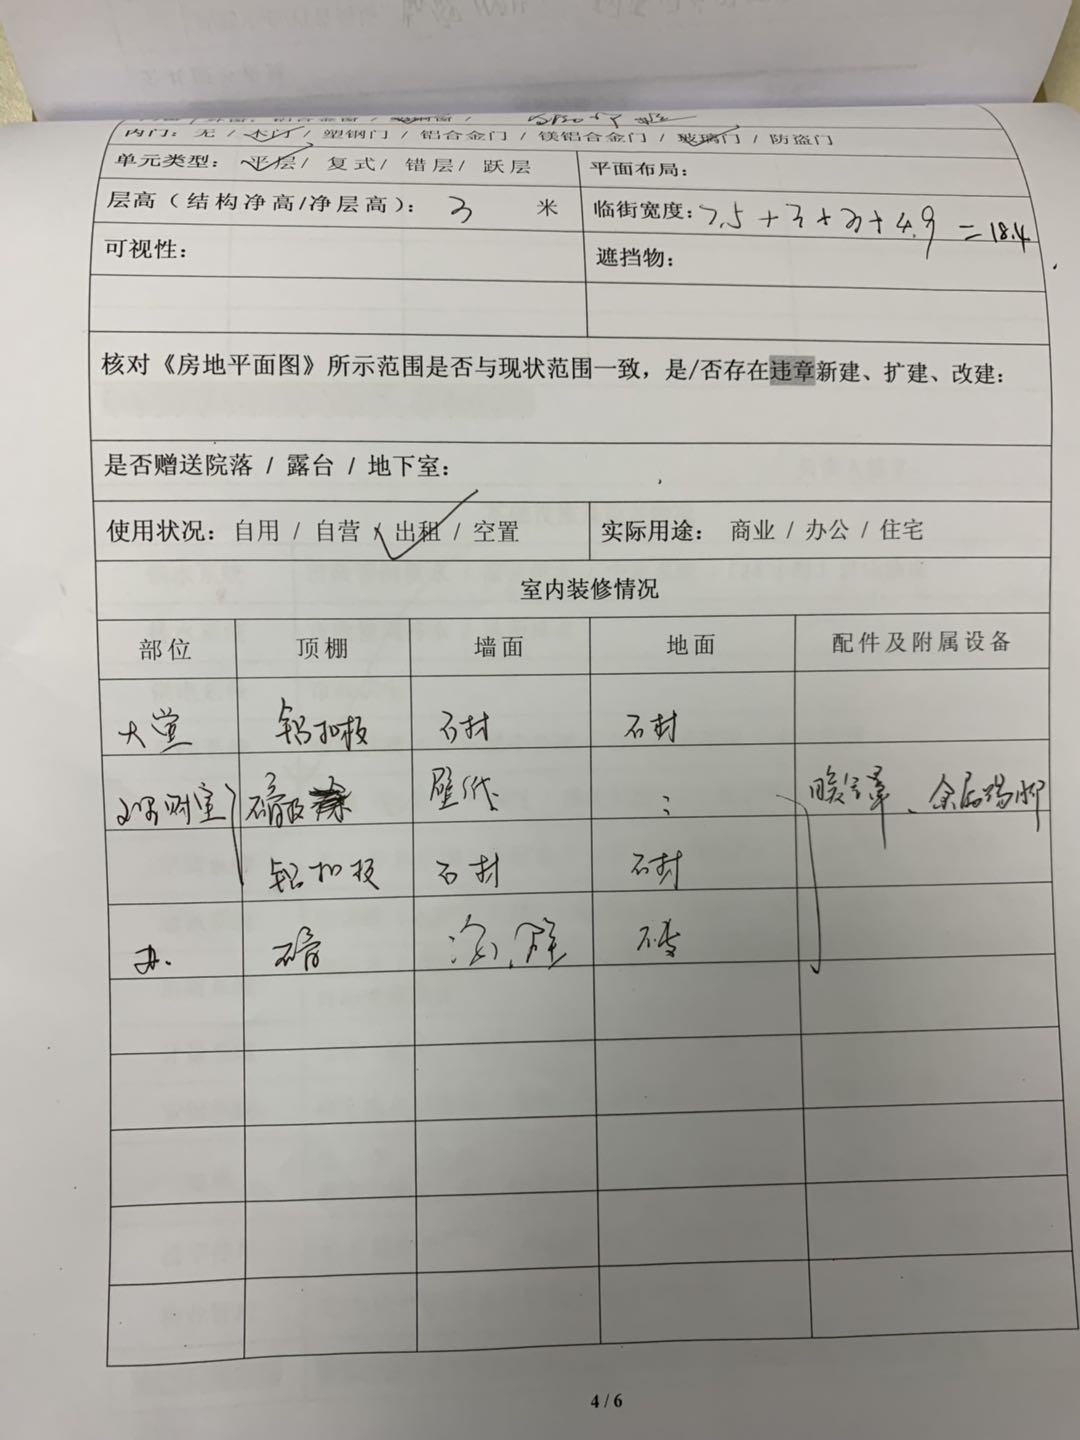 内门：无 / 木门 / 塑钢门 / 铝合金门 / 镁铝合金门 / 玻璃门 / 防盗门
单元类型：平层/ 复式/ 错层/ 跃层 平面布局：
层高（结构净高/净层高）：3 米 临街宽度：7.5+3+3+4.9=18.4
可视性： 遮挡物：
核对《房地平面图》所示范围是否与现状范围一致，是/否存在违章新建、扩建、改建：
是否赠送院落 / 露台 / 地下室：
使用状况：自用 / 自营 / 出租 / 空置 实际用途： 商业 / 办公 / 住宅
室内装修情况
部位 顶棚 墙面 地面 配件及附属设备
大堂 铝扣板 石材 石材
理财室 壁纸 暖气罩、金属踢脚
铝扣板 石材 石材
办.
4 / 6